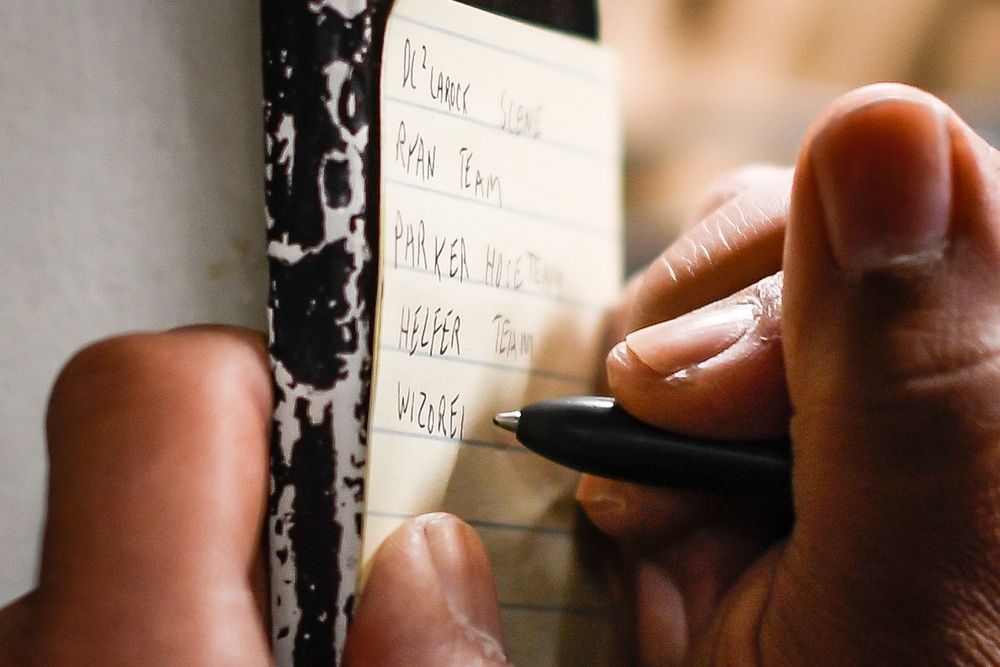 DC² LAROCK SCENE
RYAN TEAM
PARKER HOSE TEAM
HELFER TEAM
WIZOREI